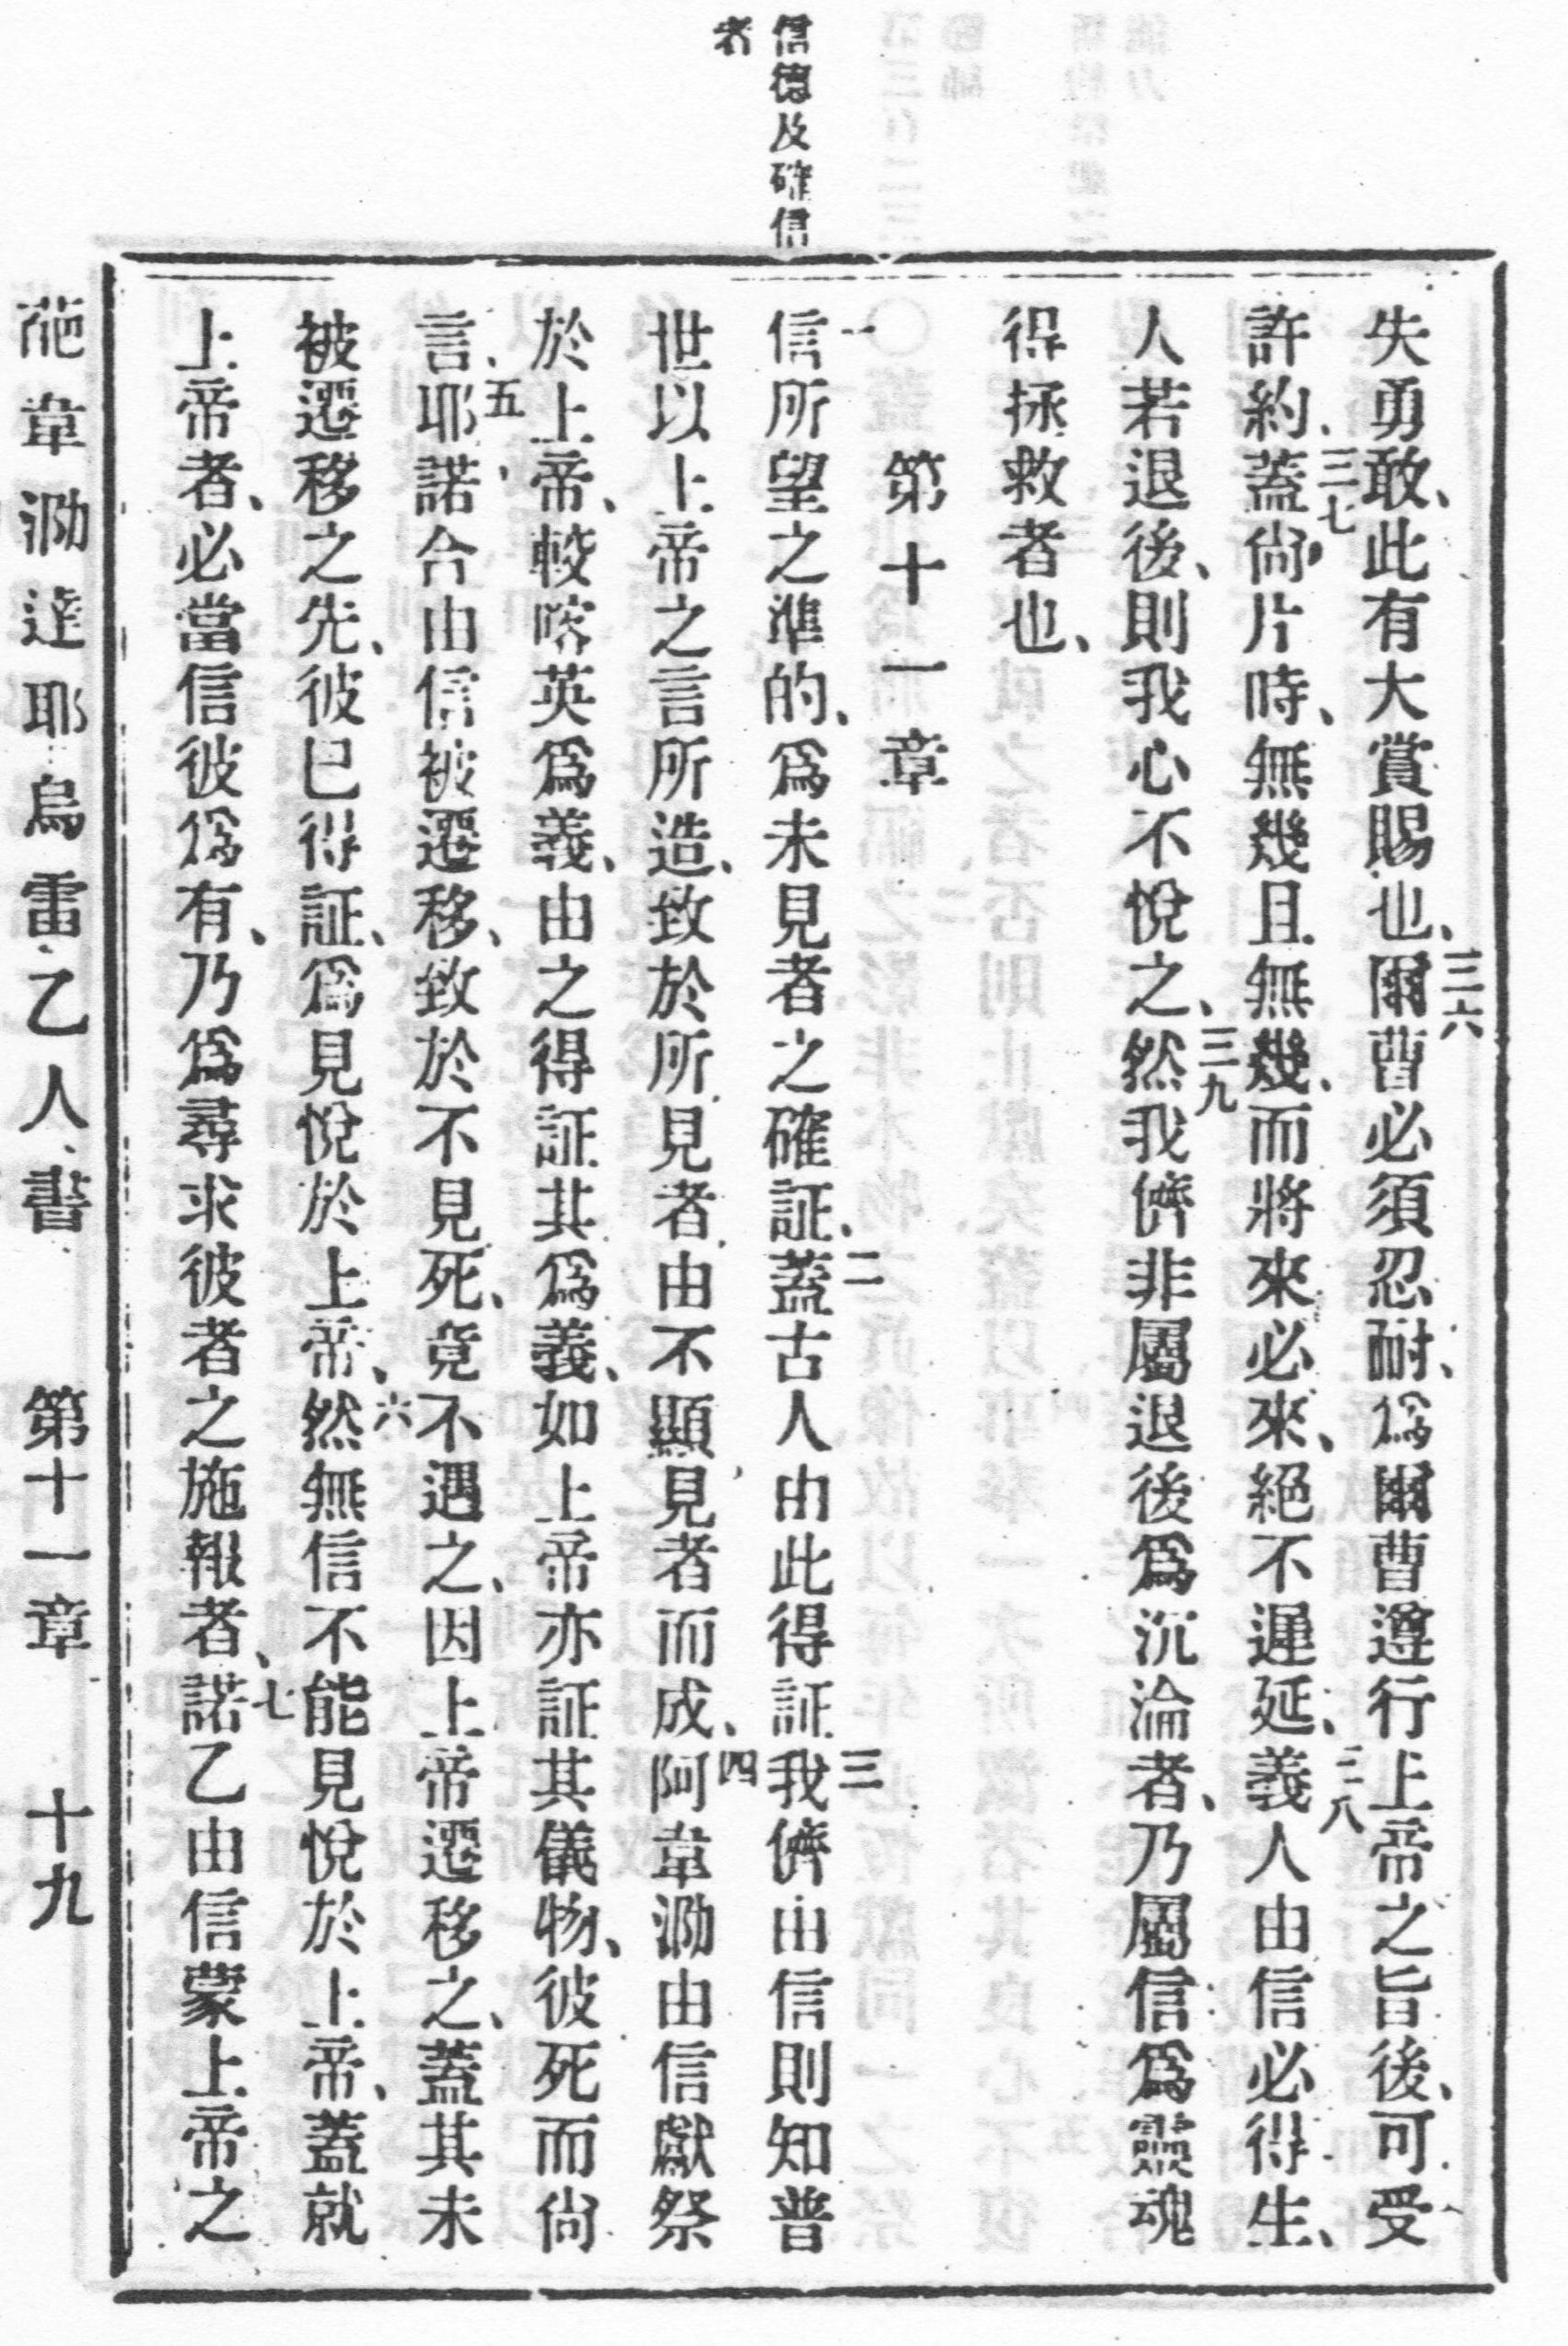 信德及確信
者
失勇敢、此有大賞賜也、三六爾曹必須忍耐、爲爾曹遵行上帝之旨後、可受
許約、三七蓋尙片時、無幾且無幾、而將來必來、絕不遲延、三八義人由信必得生、
人若退後、則我心不悅之、三九然我儕非屬退後爲沉淪者、乃屬信爲靈魂
得拯救者也、
第十一章
一信所望之準的、爲未見者之確証、二蓋古人由此得証三我儕由信則知普
世以上帝之言所造、致於所見者由不顯見者而成、四阿韋泐由信獻祭
於上帝、較喀英爲義、由之得証其爲義、如上帝亦証其儀物、彼死而尙
言、五耶諾合由信被遷移、致於不見死、竟不遇之、因上帝遷移之、蓋其未
被遷移之先、彼已得証、爲見悅於上帝、六然無信不能見悅於上帝、蓋就
上帝者、必當信彼爲有、乃爲尋求彼者之施報者、七諾乙由信蒙上帝之
葩韋泐達耶烏雷乙人書 第十一章 十九